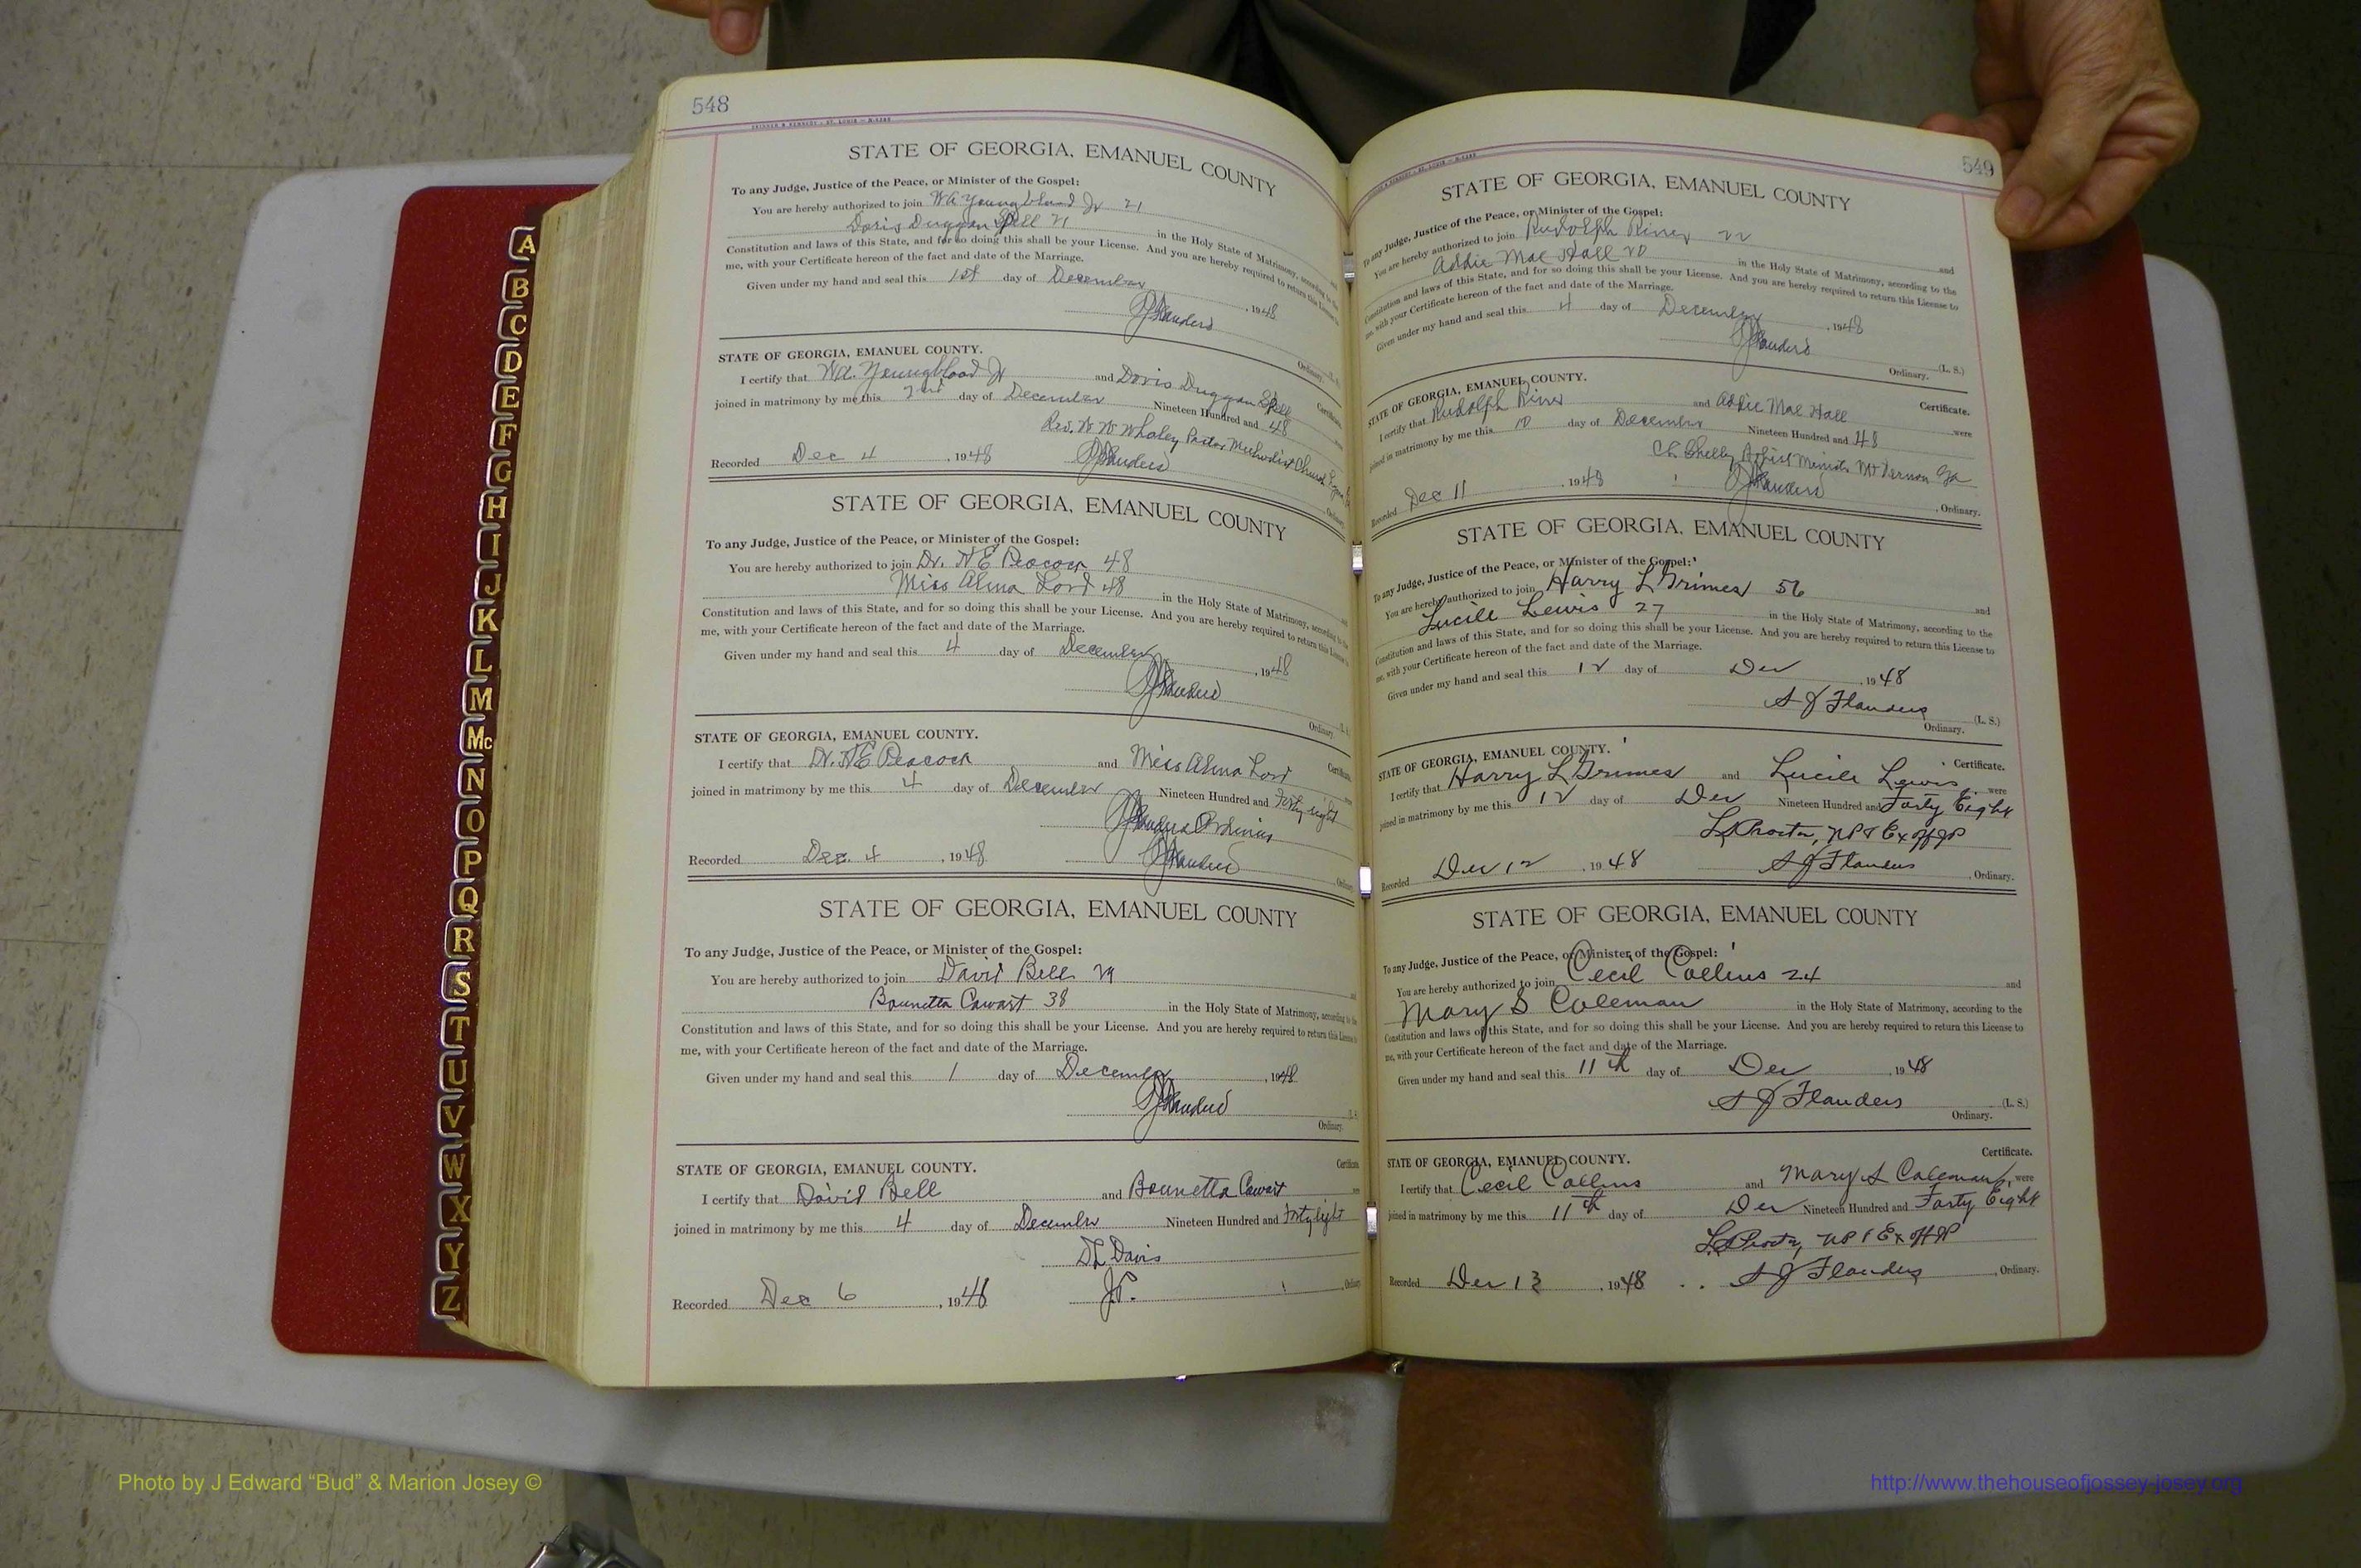 548
STATE OF GEORGIA, EMANUEL COUNTY
To any Judge, Justice of the Peace, or Minister of the Gospel:
You are hereby authorized to join W A Youngblood Jr 21
Doris Duggan Spell 21 in the Holy State of Matrimony, according to the
Constitution and laws of this State, and for so doing this shall be your License. And you are hereby required to return this License to
me, with your Certificate hereon of the fact and date of the Marriage.
Given under my hand and seal this 1st day of December, 1948
Ordinary.
STATE OF GEORGIA, EMANUEL COUNTY. Certificate
I certify that W.A. Youngblood Jr and Doris Duggan Spell
joined in matrimony by me this 2nd day of December Nineteen Hundred and 48
Rev. W W Whaley Pastor Methodist Church
Recorded Dec 4, 1948
STATE OF GEORGIA, EMANUEL COUNTY
To any Judge, Justice of the Peace, or Minister of the Gospel:
You are hereby authorized to join Dr. N E Peacock 48
Miss Alma Lord 48 in the Holy State of Matrimony, according to the
Constitution and laws of this State, and for so doing this shall be your License. And you are hereby required to return this License
me, with your Certificate hereon of the fact and date of the Marriage.
Given under my hand and seal this 4 day of December, 1948
Ordinary.
STATE OF GEORGIA, EMANUEL COUNTY.
I certify that Dr. N E Peacock and Miss Alma Lord Certificate
joined in matrimony by me this 4 day of December Nineteen Hundred and Forty eight
Recorded Dec. 4, 1948
STATE OF GEORGIA, EMANUEL COUNTY
To any Judge, Justice of the Peace, or Minister of the Gospel:
You are hereby authorized to join David Bell 29
Bounetta Cowart 38 in the Holy State of Matrimony, according to the
Constitution and laws of this State, and for so doing this shall be your License. And you are hereby required to return this License
me, with your Certificate hereon of the fact and date of the Marriage.
Given under my hand and seal this 1 day of December, 1948
Ordinary.
STATE OF GEORGIA, EMANUEL COUNTY. Certificate
I certify that David Bell and Bounetta Cowart
joined in matrimony by me this 4 day of December Nineteen Hundred and Forty eight
D L Davis
Recorded Dec 6, 1948 J.P.
549
STATE OF GEORGIA, EMANUEL COUNTY
To any Judge, Justice of the Peace, or Minister of the Gospel:
You are hereby authorized to join Rudolph Riner 22 and
Addie Mae Hall 20 in the Holy State of Matrimony, according to the
Constitution and laws of this State, and for so doing this shall be your License. And you are hereby required to return this License to
me, with your Certificate hereon of the fact and date of the Marriage.
Given under my hand and seal this 4 day of December, 1948
(L. S.)
Ordinary.
STATE OF GEORGIA, EMANUEL COUNTY. Certificate.
I certify that Rudolph Riner and Addie Mae Hall were
joined in matrimony by me this 10 day of December Nineteen Hundred and 48
Mt Vernon Ga
Recorded Dec 11, 1948, Ordinary.
STATE OF GEORGIA, EMANUEL COUNTY
To any Judge, Justice of the Peace, or Minister of the Gospel:
You are hereby authorized to join Harry L Grimes 56 and
Lucile Lewis 27 in the Holy State of Matrimony, according to the
Constitution and laws of this State, and for so doing this shall be your License. And you are hereby required to return this License to
me, with your Certificate hereon of the fact and date of the Marriage.
Given under my hand and seal this 12 day of Dec, 1948
S J Flanders (L. S.)
Ordinary.
STATE OF GEORGIA, EMANUEL COUNTY. Certificate.
I certify that Harry L Grimes and Lucile Lewis, were
joined in matrimony by me this 12 day of Dec Nineteen Hundred and Forty Eight
Proctor, NP & Ex off JP
Recorded Dec 12, 1948 S J Flanders, Ordinary.
STATE OF GEORGIA, EMANUEL COUNTY
To any Judge, Justice of the Peace, or Minister of the Gospel:
You are hereby authorized to join Cecil Collins 24 and
Mary S Coleman in the Holy State of Matrimony, according to the
Constitution and laws of this State, and for so doing this shall be your License. And you are hereby required to return this License to
me, with your Certificate hereon of the fact and date of the Marriage.
Given under my hand and seal this 11th day of Dec, 1948
S J Flanders (L. S.)
Ordinary.
STATE OF GEORGIA, EMANUEL COUNTY. Certificate.
I certify that Cecil Collins and Mary S Coleman, were
joined in matrimony by me this 11th day of Dec Nineteen Hundred and Forty Eight
Proctor, NP & Ex off JP
Recorded Dec 13, 1948 S J Flanders, Ordinary.
A
B
C
D
E
F
G
H
I
J
K
L
M
Mc
N
O
P
Q
R
S
T
U
V
W
X
Y
Z
Photo by J Edward “Bud” & Marion Josey ©
http://www.thehouseofjossey-josey.org